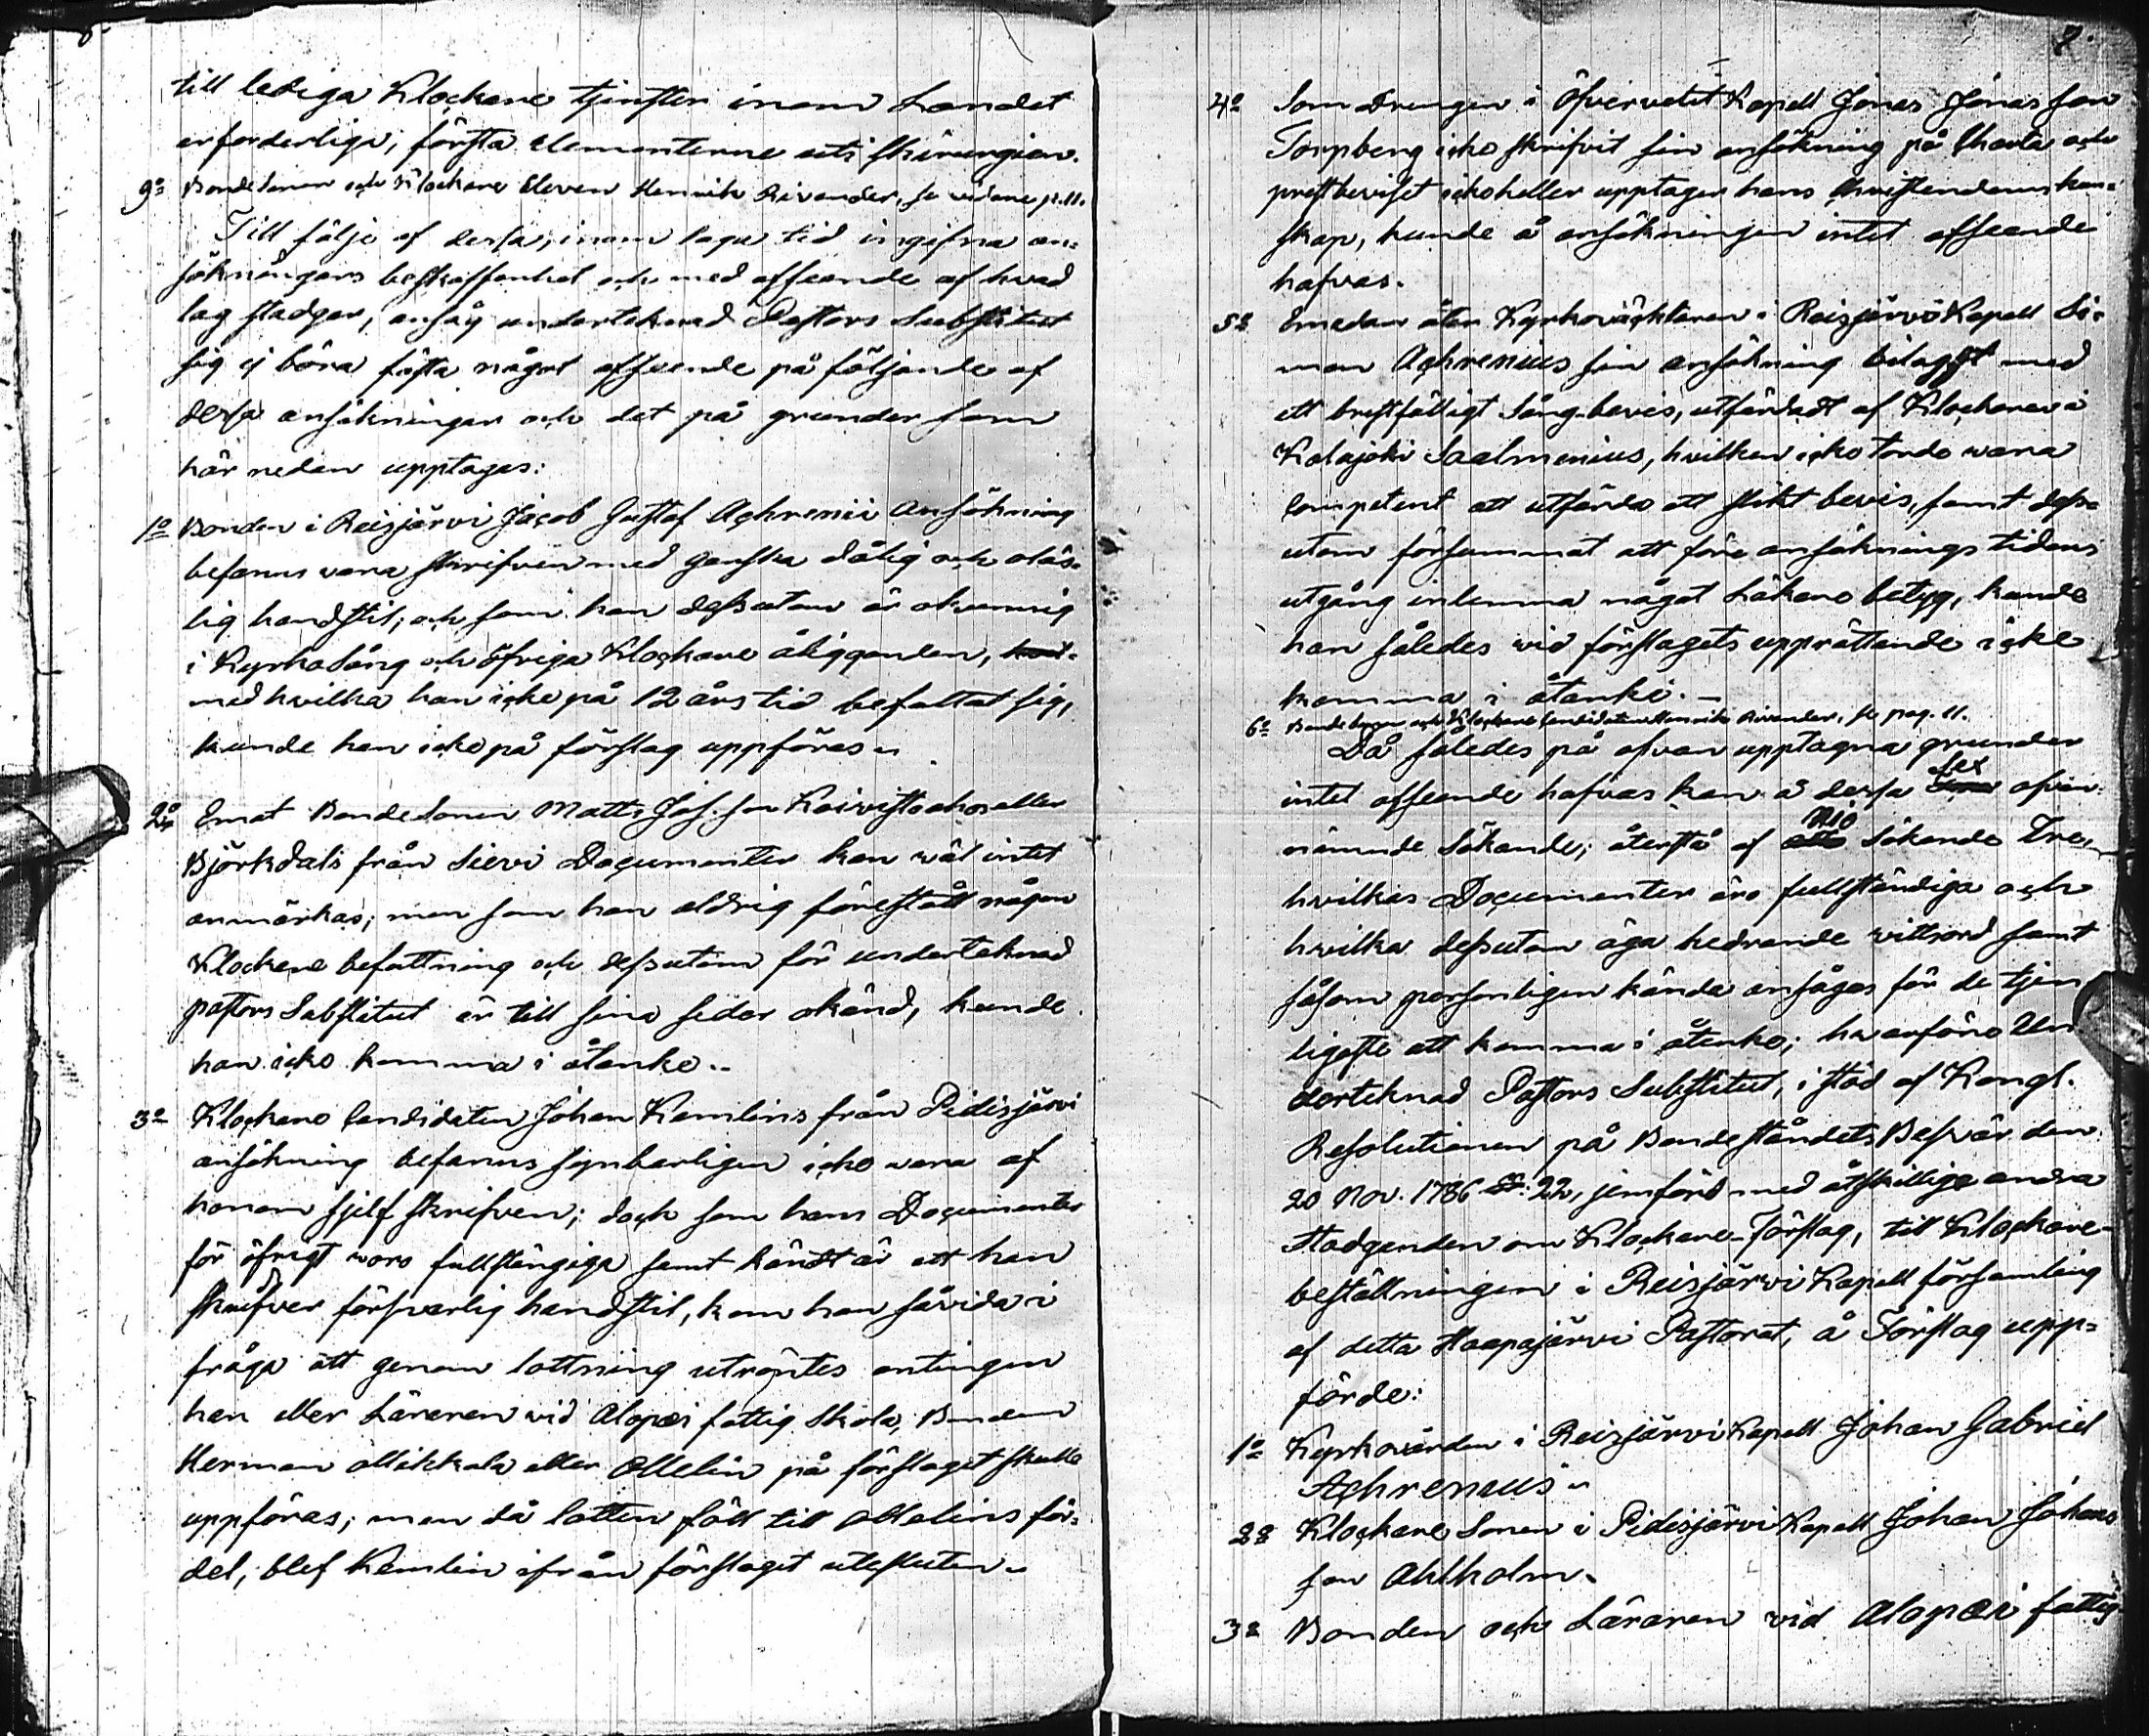 till lediga Klockare tjenster inom Landet
erforderliga, första Elementerne uti Chirurgien.
9o Bondesonen och Klockare Eleven Henrik Rivander, se vidare p. 11.
Till följe af dessa, inom laga tid ingifna an=
sökningars beskaffenhet och med afseende af hvad
lag stadgar, ansåg undertecknad Pastors Substitut
sig ej böra fästa något afseende på följande af
dessa ansökningar och det på grunder som
här nedan upptages:
1o Bonden i Reisjärvi Jacob Gustaf Achrenii Ansökning
befanns vara skrifven med ganska dålig och oläs=
lig handstil, och som han dessutom är okunnig
i Kyrkosång och öfriga Klockare åligganden,
med hvilka han icke på 12 års tid befattat sig,
kunde han icke på förslag uppföras.
2o Emot Bondesonen Matts Jos. son Koivistoaho eller
Björkdals från Sievi Documenter kan wäl intet
anmärkas; men som han aldrig förestått någon
Klockare befattning och dessutom för undertecknad
pastors Substitut är till sina seder okänd, kunde
han icke komma i åtanke.
3o Klockare Candidaten Johan Kemlins från Pidisjärvi
ansökning befanns synbarligen icke vara af
honom sjelf skrifven; dock som hans Documenter
för öfrigt woro fullständiga samt kändt är att han
skrifver försvarlig handstil, kom han såvida i
fråga att genom lottning utröntes antingen
han eller Läraren vid Alopæi fattig Skola, Bonden
Herman Ollikkala eller Ollelin på förslaget skulle
uppföras; men då lotten föll till Ollelins för=
del, blef Kemlin ifrån förslaget utesluten.
7.
4o Som Drengen i Öfvervetil Kapell Jonas Jonas son
Torpberg icke skrifvit sin ansökning på Charta och
prestbeviset icke heller upptager hans Christendoms kun=
skap, kunde å ansökningen intet afseende
hafvas.
5o Emedan åter Kyrkoväcktaren i Reisjärvi Kapell Si=
mon Achrenius sin ansökning bilagt med
ett bristfälligt Sång-bevis, utfärdadt af Klockaren i
Kalajoki Saalmenius, hvilken icke torde wara
Competent att utfärda ett slikt bevis, samt dess=
utom försummat att före ansöknings tidens
utgång inlemna något Läkare betyg, kunde
han således wid förslagets upprättande icke
komma i åtanke. —
6o Bondesonen och Klockare Candidaten Henrik Rivander, se pag. 11.
Då således på ofvan upptagna grunder
intet afseende hafvas kan å dessa sex ofvan
nämnde Sökande; återstå af Nio Sökande Tre,
hvilkas Documenter äro fullständiga och
hvilka dessutom äga hedrande wittsord samt
såsom personligen kända ansågos för de tjen
ligaste att komma i åtanke; hvarföre Un
dertecknad Pastors Substitut, i stöd af Kongl.
Resolutionen på Bondeståndets Besvär den
20 Nov. 1786 §: 22, jemförd med åtskillige andra
Stadganden om Klockare-Förslag, till Klockare-
beställningen i Reisjärvi Kapell församling
af detta Haapajärvi Pastorat, å Förslag upp=
förde:
1o Kyrkovärden i Reisjärvi Kapell Johan Gabriel
Achrenius.
2o Klockare Sonen i Pidisjärvi Kapell Johan Johans
son Ahlholm.
3o Bonden och Läraren vid Alopæi fattig